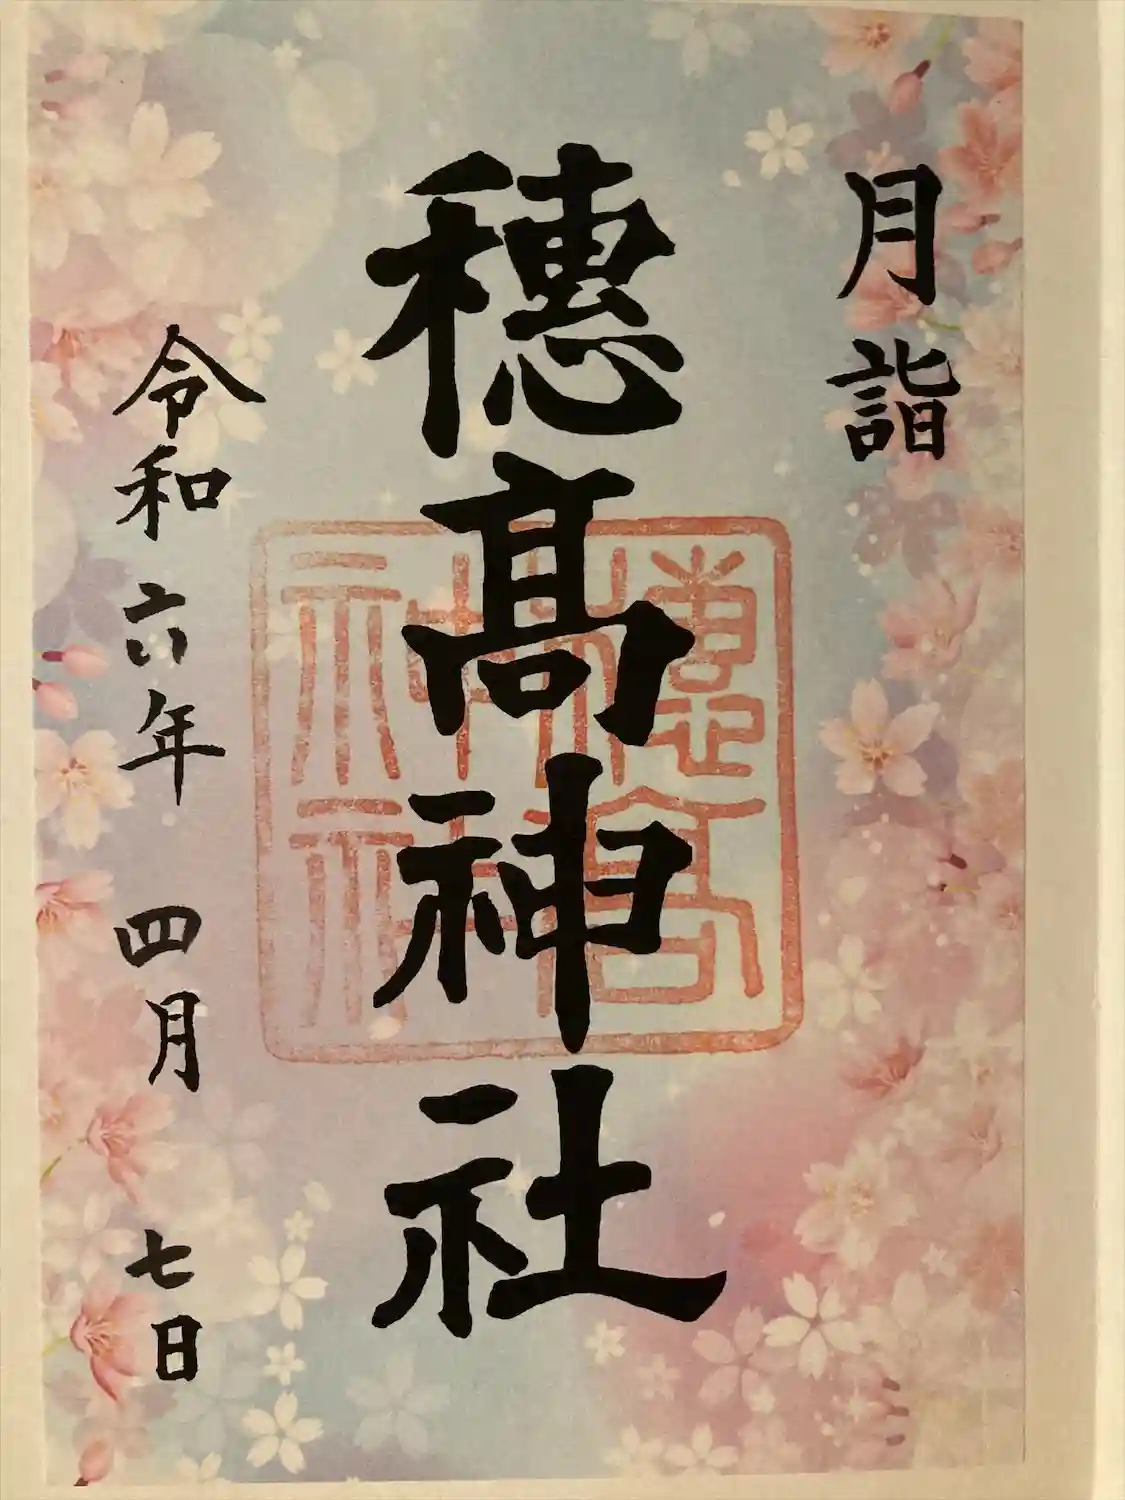 月詣
穂髙神社
穂高
神社
令和六年 四月 七日